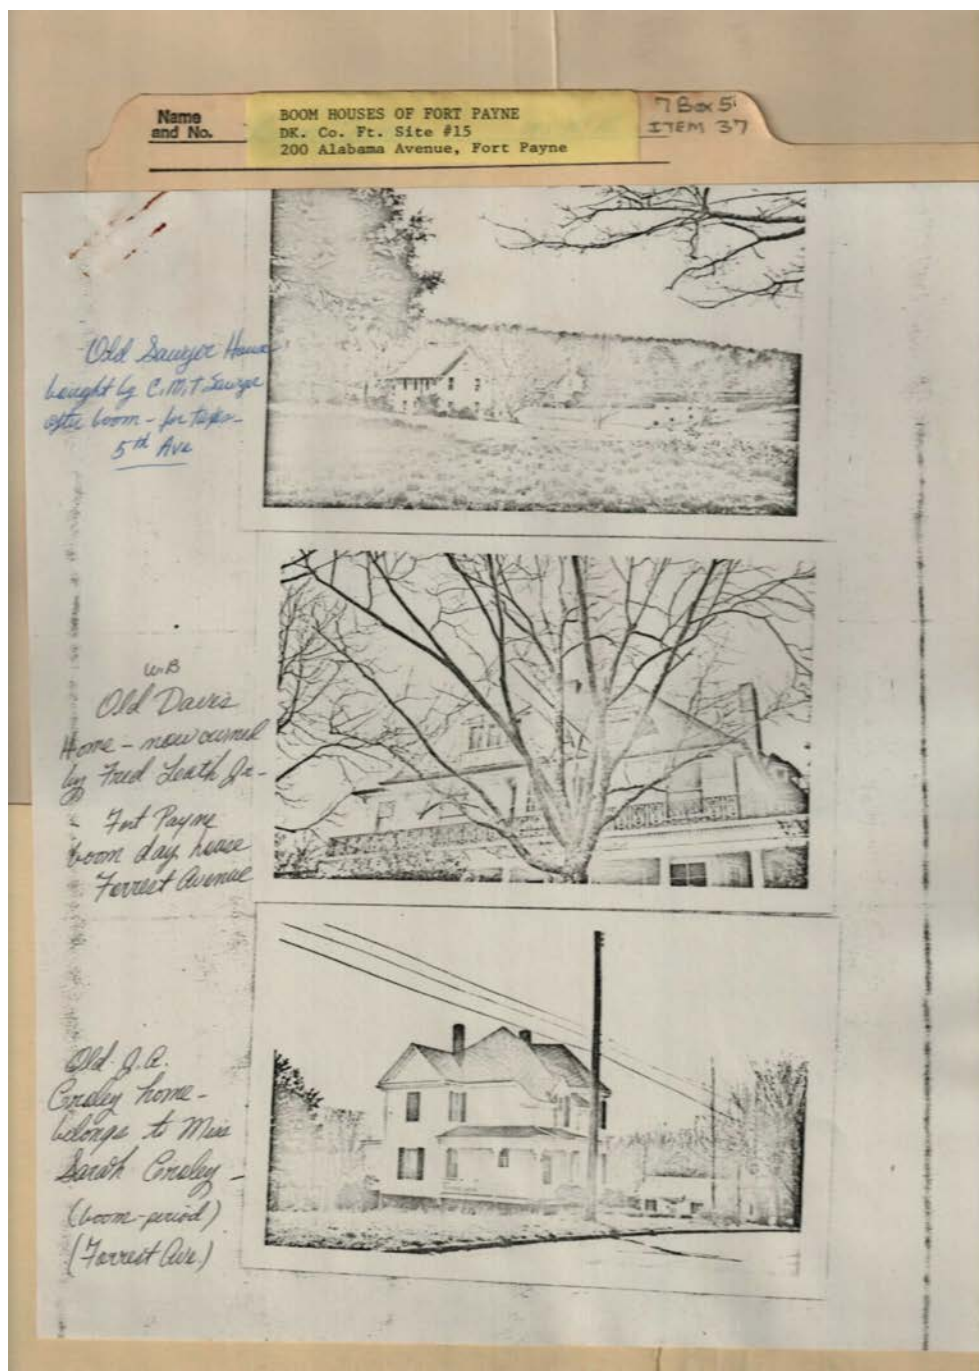 Name
and No.
BOOM HOUSES OF FORT PAYNE
DK. Co. Ft. Site #15
200 Alabama Avenue, Fort Payne
7 Box 5
ITEM 37
Old Sawyer House
bought by C.M.T. Sawyer
after boom - for taxes -
5th Ave
W.B
Old Davis
Home - now owned
by Fred Leath Jr. -
- Fort Payne
boom day house
Forrest Avenue
Old J.A.
Croley home -
belongs to Miss
Sarah Croley -
(boom-period)
(Forrest Ave.)